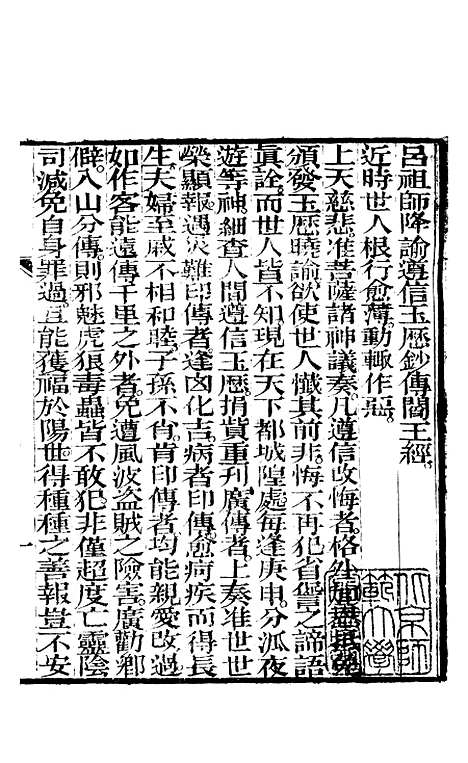 呂祖師降諭遵信玉歷鈔傳閻王經
近時世人根行愈薄動輒作惡
上天慈悲准菩薩諸神議奏凡遵信改悔者格外
頒發玉歷曉諭欲使世人懺其前非悔不再犯省諐之諦語
眞詮而世人皆不知現在天下都城隍處每逢庚申分派夜
遊等神細查人間遵信玉歷捐貲重刊廣傳者上奏准世世
榮顯報遇災難印傳者逢凶化吉病者印傳愈痾疾而得長
生夫婦至戚不相和睦子孫不肯肖印傳者均能親愛改過
如作客能遠傳千里之外者免遭風波盜賊之險害廣勸鄉
僻入山分傳則邪魅虎狼毒蟲皆不敢犯非僅超度亡靈陰
司減免自身罪過且能獲福於陽世得種種之善報豈不安
一
北京師範大學